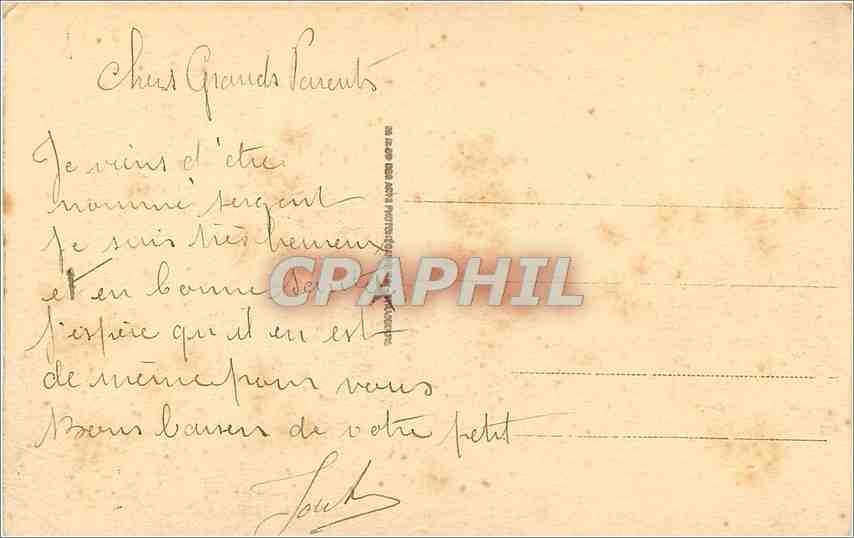 Chers Grands Parents
Je viens d'être
nommé sergent
Je suis très heureux
et en bonne santé
j'espère qu'il en est
de même pour vous
Bons baisers de votre petit
CPAPHIL